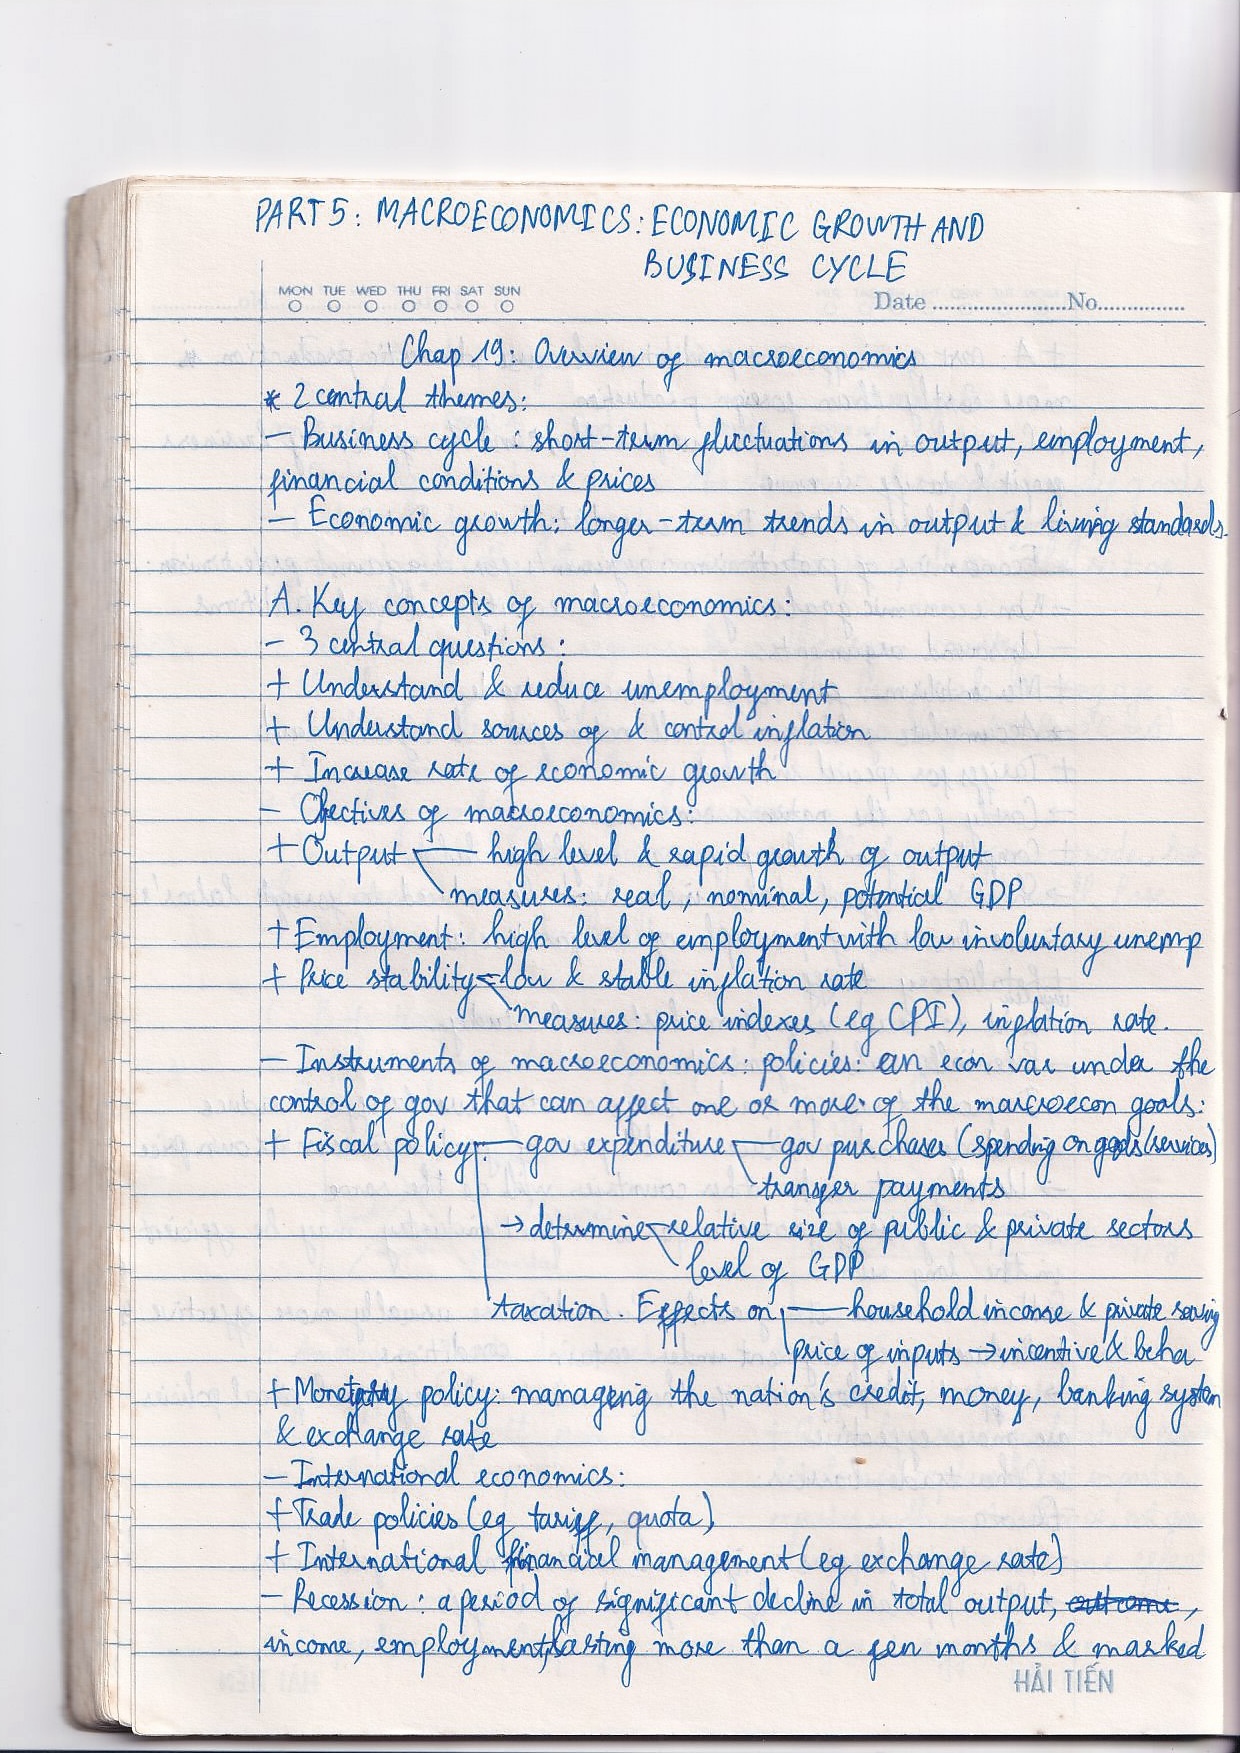 PART 5: MACROECONOMICS: ECONOMIC GROWTH AND
BUSINESS CYCLE
MON TUE WED THU FRI SAT SUN
Date ........................No................
Chap 19: Overview of macroeconomics
* 2 central themes:
- Business cycle : short-term fluctuations in output, employment,
financial conditions & prices
- Economic growth: longer-term trends in output & living standards.
A. Key concepts of macroeconomics:
- 3 central questions:
+ Understand & reduce unemployment
+ Understand sources of & control inflation
+ Increase rate of economic growth
- Ojectives of macroeconomics:
+ Output — high level & rapid growth of output
measures: real, nominal, potential GDP
+ Employment: high level of employment with low involuntary unemp
+ Price stability - low & stable inflation rate
measures: price indexes (eg CPI), inflation rate.
- Instruments of macroeconomics: policies: an econ var under the
control of gov that can affect one or more of the macroecon goals:
+ Fiscal policy — gov expenditure — gov purchases (spending on goods/services)
transfer payments
→ determine - relative size of public & private sectors
level of GDP
taxation. Effects on — household income & private saving
price of inputs → incentive & beha
+ Monetary policy: managing the nation's credit, money, banking system
& exchange rate
- International economics:
+ Trade policies (eg tariff, quota)
+ International financial management (eg exchange rate)
- Recession : a period of significant decline in total output, outcome,
income, employment, lasting more than a few months & marked
HẢI TIẾN